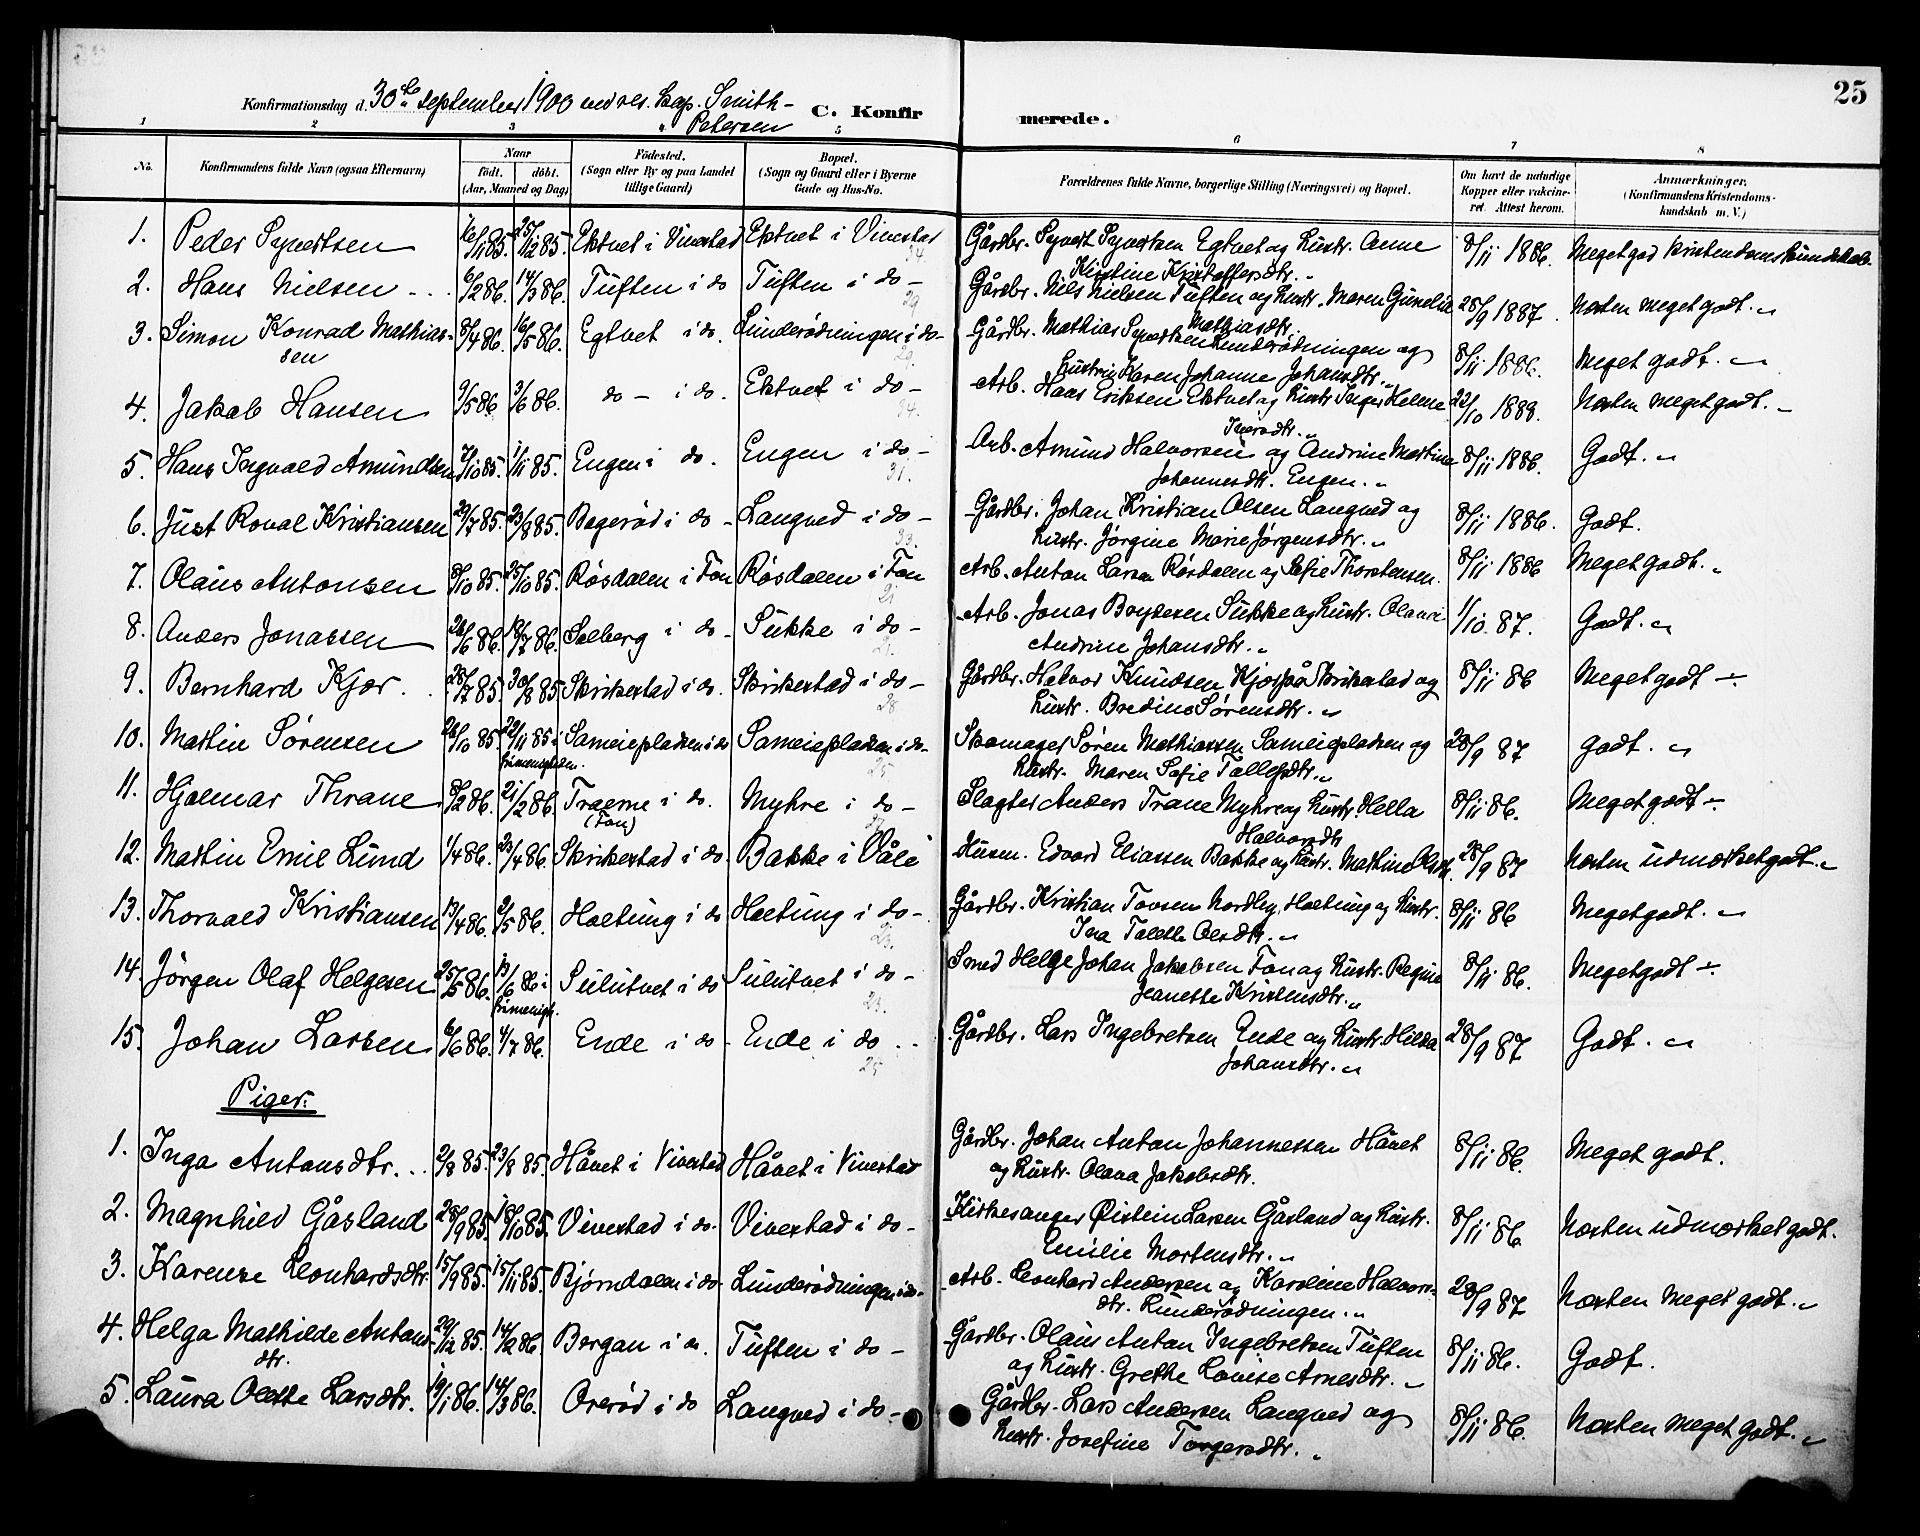 25
Konfirmationsdag d. 30te september 1900 ved res. kap. Smith-
Petersen
C. Konfirmerede.
1 2 3 4 5 6 7 8
No. Konfirmandens fulde Navn (ogsaa Efternavn) Naar födt. döbt. (Aar, Maaned og Dag) Födested. (Sogn eller By og paa Landet tillige Gaard) Bopæl. (Sogn og Gaard eller i Byerne Gade og Hus-No. Forældrenes fulde Navne, borgerlige Stilling (Næringsvei) og Bopæl. Om havt de naturlige Kopper eller vakcineret. Attest herom. Anmærkninger. (Konfirmandens Kristendomskundskab m. V.)
1. Peder Syvertsen 16/11 85. 25/12 85. Ektvet i Vivestad Ektvet i Vivestad Gårdbr. Syvert Syvertsen Egtvet og hustr. Anne 8/11 1886. Meget god kristendomskundskab.
34. Kirstine Kristoffersdtr. „
2. Hans Nielsen 6/2 86. 14/3 86. Tuften i do Tuften i do - Gårdbr. Nils Nielsen Tuften og hustr. Maren Gunelia 28/9 1887. Næsten meget godt. „
29 Mathiasdtr.
3. Simon Konrad Mathias- 8/4 86. 16/5 86. Egtvet i do. Lunderødningen i do- Gårdbr. Mathias Syvertsen Lunderødningen og 8/11 1886. Meget godt. „
sen hustru Karen Johanne Johansdtr. „
4. Jakob Hansen 9/5 86. 3/6 86. do - i do. Ektvet i do - Arb. Hans Eriksen Ektvet og hustr. Inger Helene 22/10 1888. Næsten meget godt. „
34. Iversdtr. „
5. Hans Ingvald Amundsen 21/10 85. 1/11 85. Engen i do. Engen i do - Arb. Amund Halvorsen og Andrine Martine 8/11 1886. Godt. „
31. Johannesdtr. Engen. „
6. Just Roval Kristiansen 29/7 85. 23/8 85. Bøgerød i do - Langved i do - Gårdbr. Johan Kristian Olsen Langved og 8/11 1886. Godt.
33. hustr. Jørgine Marie Jørgensdtr. „
7. Olaus Antonsen 8/10 85. 25/10 85. Røsdalen i Fon Røsdalen i Fon Arb. Anton Larsen Røsdalen og Sofie Thorstensen. 8/11 1886 Meget godt. „
21
8. Anders Jonassen 26/6 86. 18/7 86. Solberg i do - Sukke i do - Arb. Jonas Brynsen Sukke og hustr. Olava 1/10. 87. Godt. „
21. Andrine Johansdtr. „
9. Bernhard Kjær. 28/7 85. 30/8 85 Skrikestad i do. Skrikestad i do - Gårdbr. Halvor Knudsen Kjær på Skrikestad og 8/11 86 Meget godt ÷
28. hustr. Bredine Sørensdtr. „
10. Martin Sørensen 26/10 85. 22/11 85 i Sameiepladsen i do Sameiepladsen i do- Skomager Søren Mathiassen Sameiepladsen og 28/9 87 godt. „
frimenigheden. 25 hustr. Maren Sofie Tollefsdtr. „
11. Hjalmar Thrane 8/2 86. 21/2 86. Traerne i do. Myhre i do - Slagter Anders Trane Myhre og hustr. Hella 8/11 86. Meget godt ÷
(Fon) 27 Halvorsdtr
12. Martin Emil Lund 1/4 86. 23/4 86. Skrikestad i do. Bakke i Våle Husm. Edvard Eliassen Bakke og hustr. Mathine Olsdtr. 28/9 87 Næsten udmærket godt. „
13. Thorvald Kristiansen 13/4 86. 2/5 86. Holtung i do Holtung i do - Gårdbr. Kristian Tovsen Nordby, Holtung og hustr. 8/11 86 Meget godt. „
23. Ina Talette Olsdtr. „
14. Jørgen Olaf Helgesen 25/5 86. 13/6 86 i Sulutvet i do Sulutvet i do - Smed Helge Johan Jakobsen Fon og hustr. Regine 8/11 86. Meget godt ÷
frimenigh. 23. Jeanette Kristensdtr. „
15. Johan Larsen 6/6 86. 4/7 86. Ende i do - Ende i do . . Gårdbr. Lars Ingebretsen Ende og hustr. Hilda 28/9 87 Godt. „
25 Johansdtr. „
Piger:
1. Inga Antonsdtr. . . 2/8 85. 23/8 85. Håvet i Vivestad Håvet i Vivestad Gårdbr. Johan Anton Johannessen Håvet 8/11 86. Meget godt.
og hustr. Olava Jakobsdtr.
2. Magnhild Gåsland 28/9 85. 18/10 85. Vivestad i do. Vivestad i do - Kirkesanger Øistein Larsen Gåsland og hustr. 8/11 86 Næsten udmærket godt.
Emilie Mortensdtr. „
3. Karense Leonhardsdtr. 15/9 85. 15/11 85. Bjørndalen i do. Lunderødningen i do- Arb. Leonhard Andersen og Karoline Halvors- 28/9 87 Næsten meget godt. „
dtr. Lunderødningen. „
4. Helga Mathilde Antons- 29/12 85. 14/2 86. Bergan i do. Tuften i do - Gårdbr. Olaus Anton Ingebretsen Tuften 8/11 86. Godt.
dtr. og hustr. Grethe Lovise Arnesdtr. „
5. Laura Olette Larsdtr. 19/1 86. 14/3 86. Orerød i do Langved i do - Gårdbr. Lars Andersen Langved og 8/11 86. Næsten meget godt. „
hustr. Josefine Torgersdtr. „